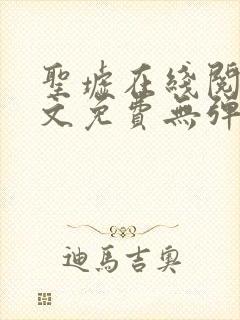 聖墟在綫閱
文免費無彈
迪馬吉奧